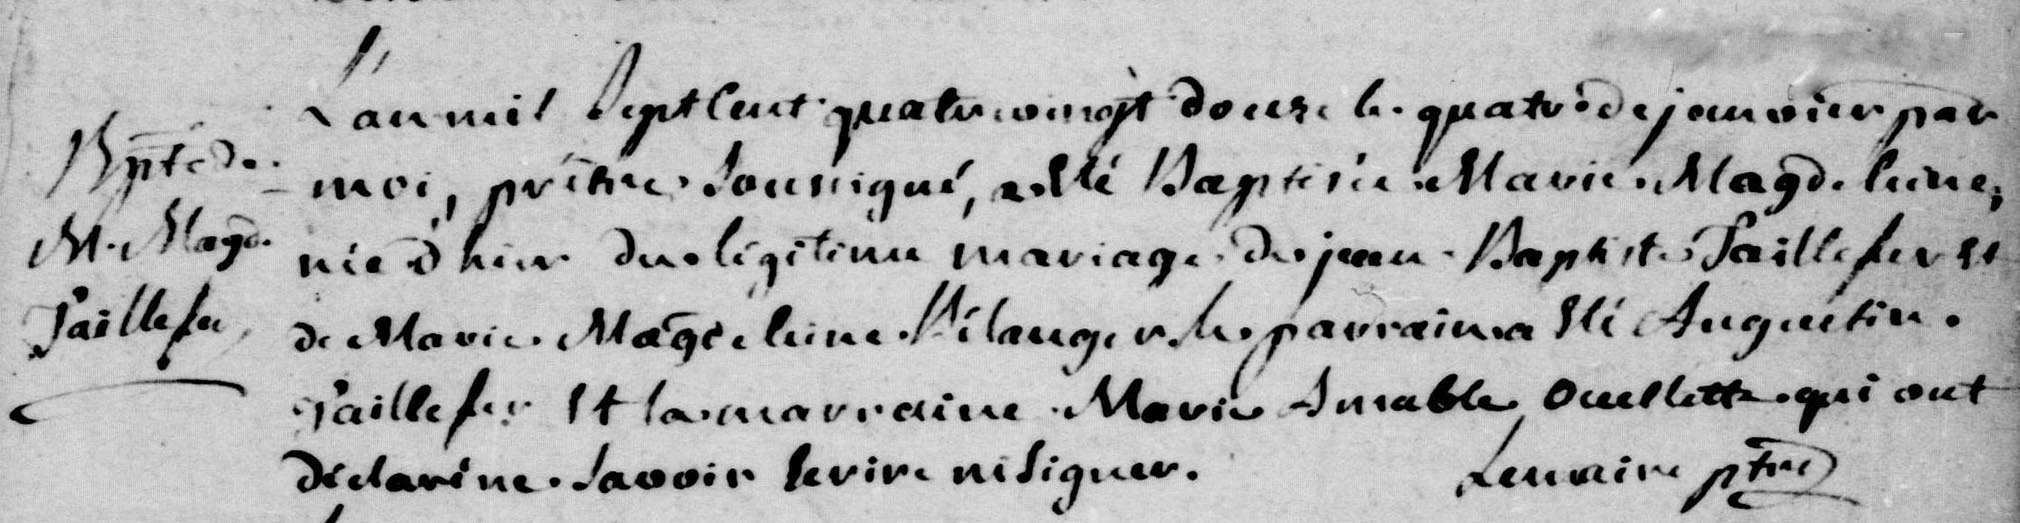 Bpte de
M. Magd.
Taillefer
L'an mil Sept Cent quatrevingt douze le quatre de janvier par
moi, prêtre Soussigné, a Eté Baptisée Marie Magdeleine,
née d'hier du légitime mariage de jean Baptiste Taillefer et
de Marie Magdeleine Bélanger, le parrain a Eté Augustin
Taillefer Et la marraine Marie Amable Ouellette qui ont
déclaré ne Savoir Ecrire ni Signer.
Lemaire ptre